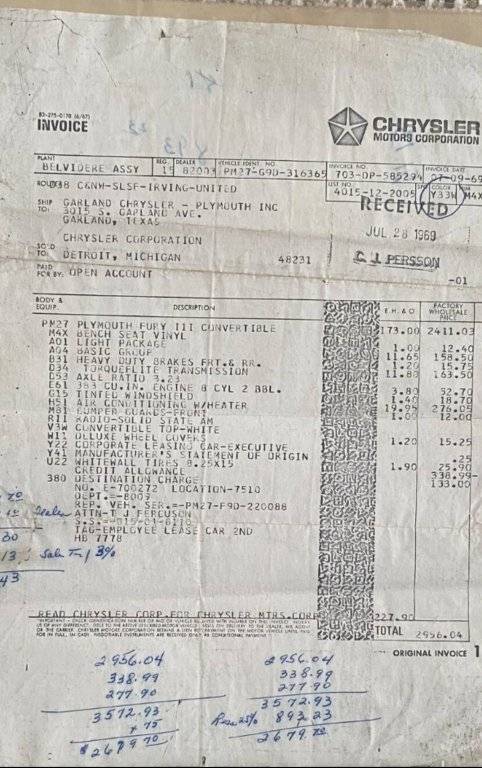 82-275-0170 (6/67)
INVOICE
CHRYSLER
MOTORS CORPORATION
PLANT REG. DEALER VEHICLE IDENT. NO. INVOICE NO. INVOICE DATE
BELVIDERE ASSY 15 82003 PM27-G9D-316365 703-DP-585294 07-09-69
38 C&NW-SLSF-IRVING-UNITED
4015-12-2005 COLOR Y33W M4X
SHIP TO: GARLAND CHRYSLER - PLYMOUTH INC
3015 S. GARLAND AVE.
GARLAND, TEXAS
RECEIVED
JUL 28 1969
C J PERSSON
CHRYSLER CORPORATION
SOLD TO: DETROIT, MICHIGAN 48231
-01
PAID FOR BY: OPEN ACCOUNT
BODY & EQUIP. DESCRIPTION E. H. & D FACTORY WHOLESALE PRICE
PM27 PLYMOUTH FURY III CONVERTIBLE 173.00 2411.03
M4X BENCH SEAT VINYL
A01 LIGHT PACKAGE 1.00 12.40
A04 BASIC GROUP 11.65 158.50
B31 HEAVY DUTY BRAKES FRT.& RR. 1.20 15.75
D34 TORQUEFLITE TRANSMISSION 11.80 163.50
D53 AXLE RATIO 3.23
E61 383 CU.IN. ENGINE 8 CYL 2 BBL. 3.80 52.70
G15 TINTED WINDSHIELD 1.40 18.70
H51 AIR CONDITIONING W/HEATER 19.95 276.05
M81 BUMPER GUARDS-FRONT 1.00 12.00
R11 RADIO-SOLID STATE AM
V3W CONVERTIBLE TOP-WHITE
W11 DELUXE WHEEL COVERS 1.20 15.25
Y22 CORPORATE LEASING CAR-EXECUTIVE
Y41 MANUFACTURER'S STATEMENT OF ORIGIN .25
U22 WHITEWALL TIRES 8.25X15 1.90 25.90
CREDIT ALLOWANCE 338.99-
380 DESTINATION CHARGE 133.00
NO. E-700272 LOCATION-7510
DEPT.=-8009
REP. VEH. SER.=-PM27-F9D-220088
ATTN-T J FERGUSON
TAG-EMPLOYEE LEASE CAR 2ND
HB 7778
Dealer
30
13 Sales Tax 3%
43
READ CHRYSLER CORP.FOR CHRYSLER MTRS.CORP 227.90
TOTAL 2956.04
ORIGINAL INVOICE 1
2956.04 2956.04
338.99 338.99
277.90 277.90
3572.93 3572.93
x 75 25% 893.23
$2679.70 2679.70